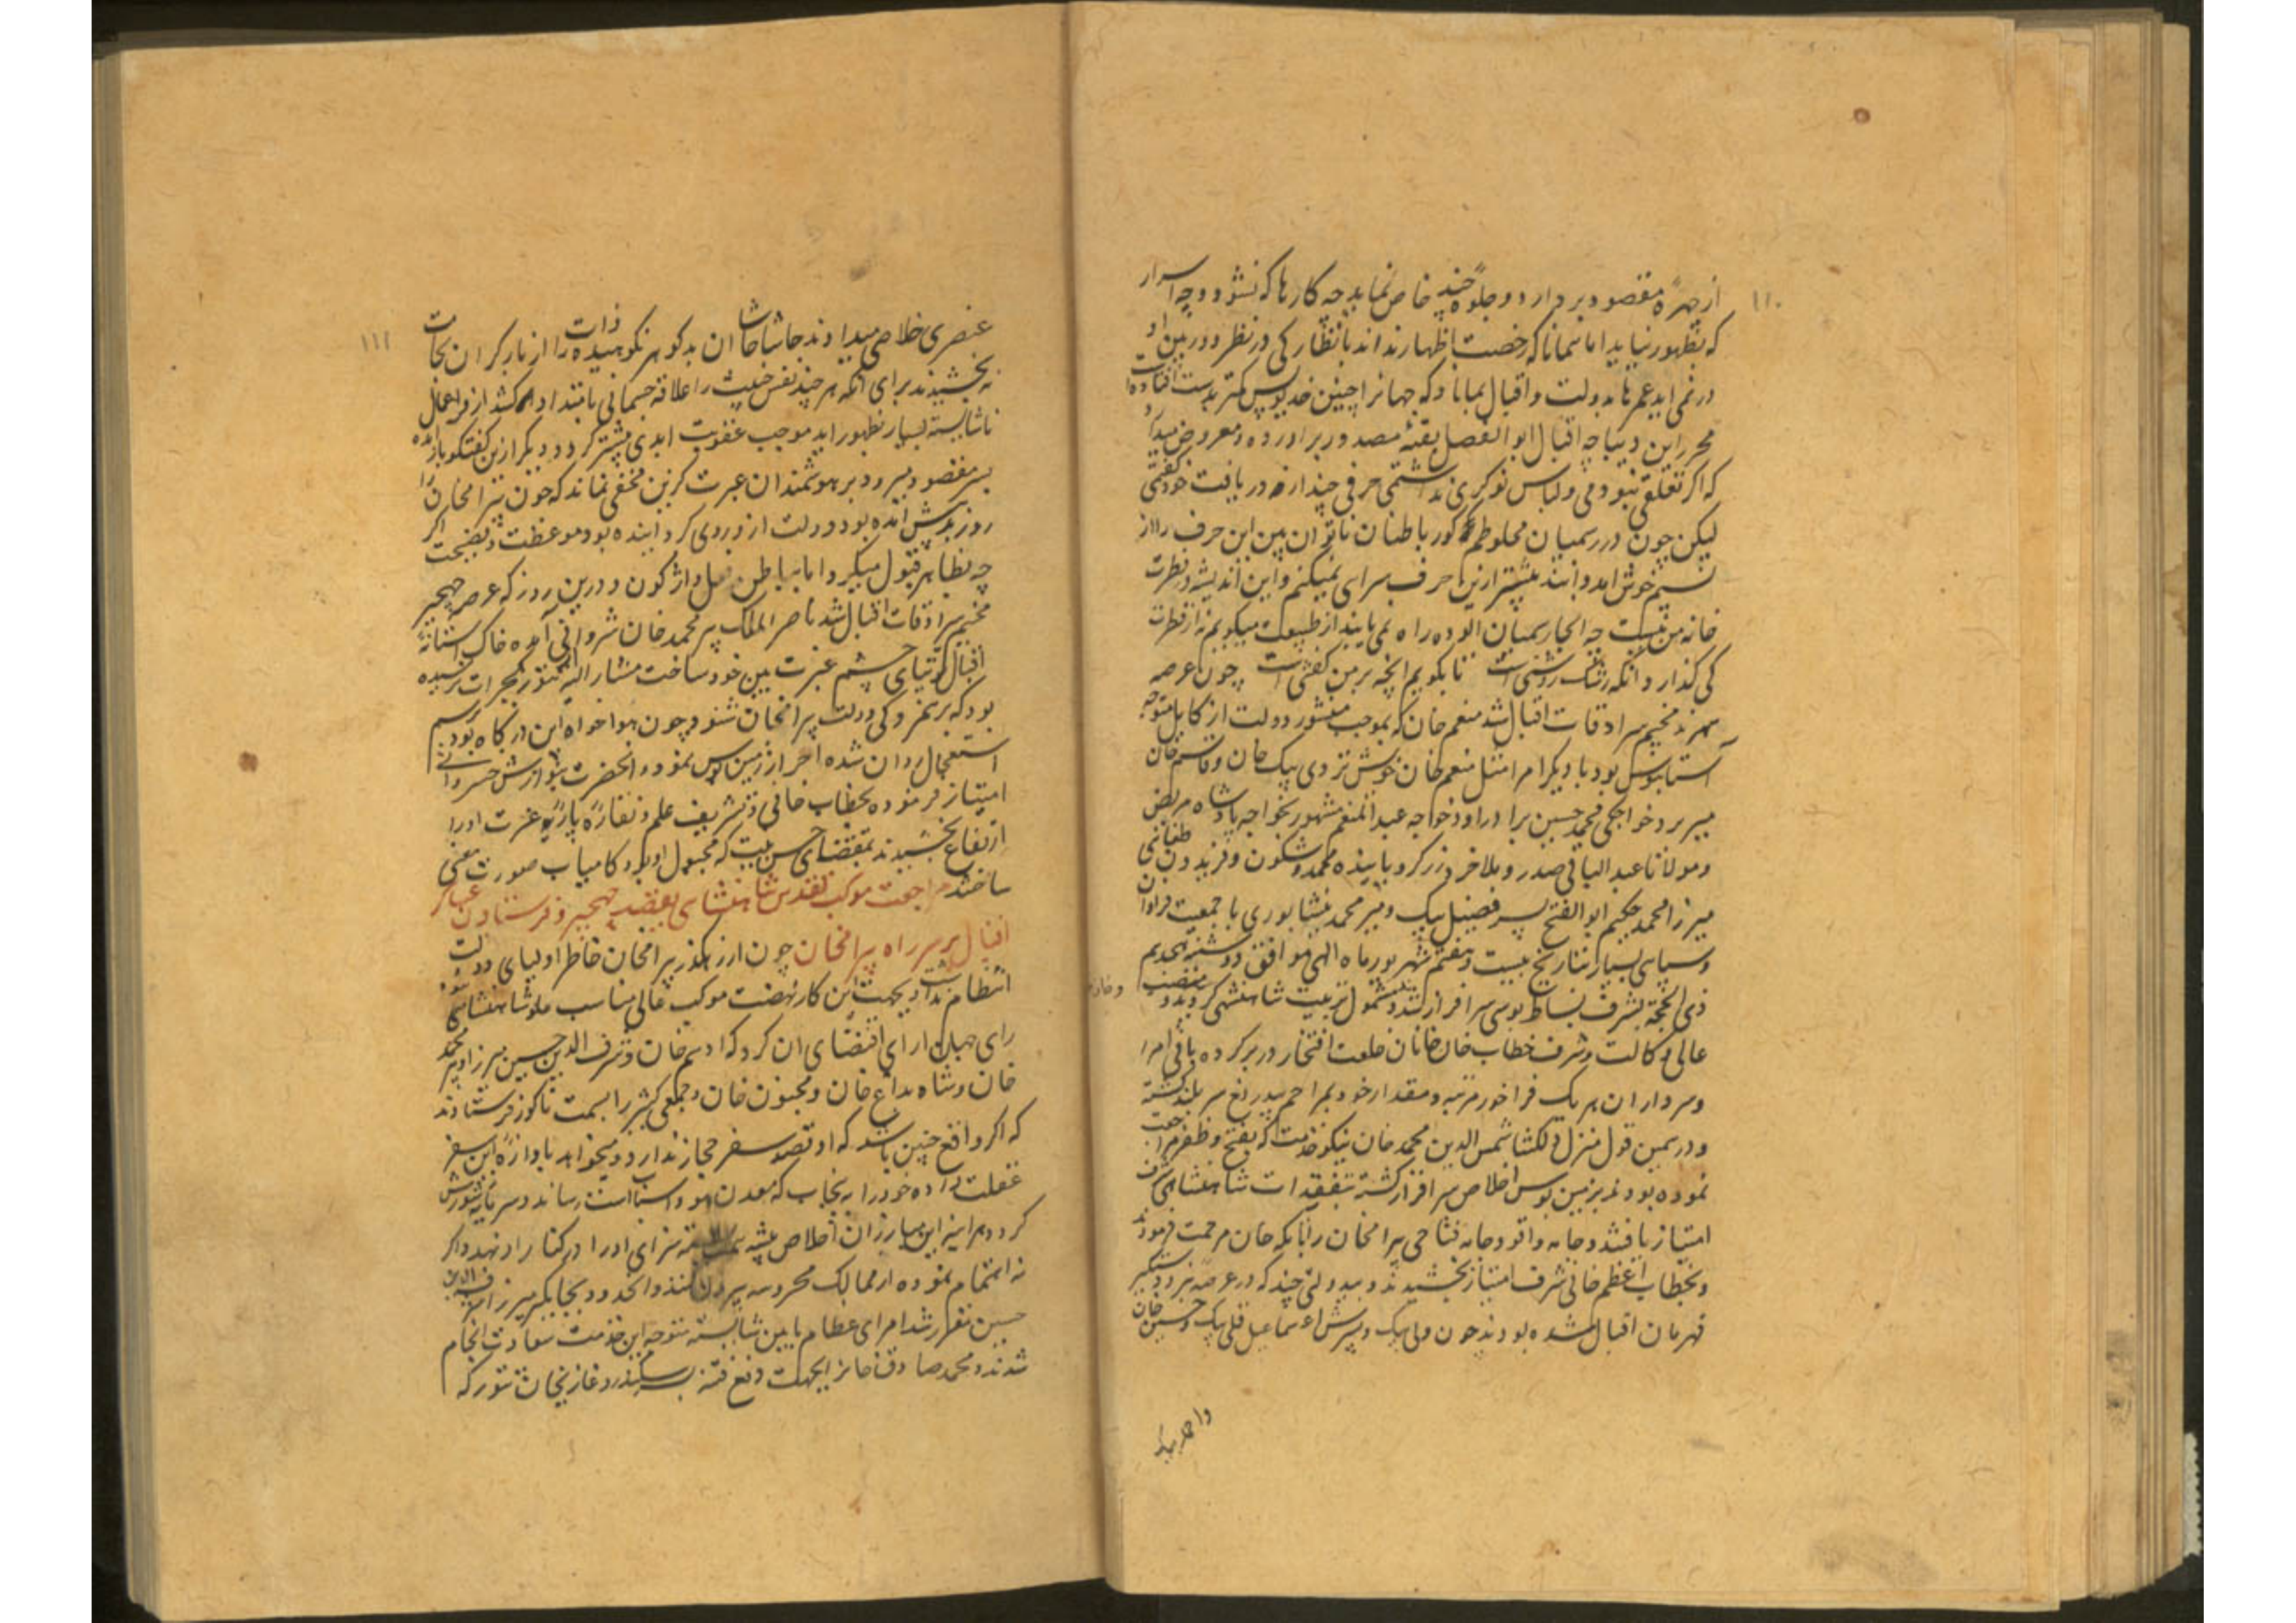 ۱۱۰
از چهرهٔ مقصود بردارد و جلوهٔ چند خاص نماید چه کارها که نشود و چه اسرار
که بظهور نیاید اما همانا که رخصت اظهار نداند یا نظارکی در نظر دوربین او
در نمی آید عمرها بدولت و اقبال بماناد که جهانرا چنین خدیوس کمتر بدست افتاده
محرر این دیباچه اقبال ابوالفضل بقثه مصدور برآورده معروض میدارد
که اگر تعلقی نبودمی و لباس نوکری نداشتمی حرفی چند از دریافت خود گفتمی
لیکن چون در رسمیان مخلوطم کور باطنان ناتوان بین این حرف را از
قسم خوش آمد دانند بیشتر ازین حرف سرای نمیکنم و این اندیشه در فطرت
خانه من نیست چه انجا رسمیان الوده راه نمی یابند از طبیعت میگویم نه از فطرت
کی گذارد انکه رشک روشنی است تا بگویم انچه بر من گفتنی است چون عرصه
سهرند مخیم سرادقات اقبال شد منعم خان که بموجب منشور دولت از کابل متوجه
آستانبوس بود با دیگر امرا مثل منعم خان خویش تردی بیک خان و قاسم خان
میر برد خواجکی محمد حسین برادر او و خواجه عبدالمنعم مشهور بخواجه پادشاه مریض
و مولانا عبدالباقی صدر و ملا خرد زرکر و پاینده محمد و شکون و فریدون طغائی
میرزا محمد حکیم ابوالفتح پسر فضیل بیک و میر محمد نیشابوری با جمعیت فراوان
و سپاسی بسیار بتاریخ بیست و هفتم شهریور ماه الهی موافق دوشنبه هجدهم
ذی الحجه بشرف بساط بوسی سرافراز شد و مشمول تربیت شاهنشهی کردید و منصب
عالی وکالت و شرف خطاب خان خانان خلعت افتخار در بر کرده باقی امرا
و سرداران هر یک فراخور مرتبه و مقدار خود بمراحم بیدریغ سربلند گشته
و در همین قول منزل دلکشا شمس الدین محمد خان نیکو خدمت که بفتح و ظفر مراجعت
نموده بود نیز بزمین بوس اخلاص سرافراز گشته بتفقدات شاهنشاهی شرف
امتیاز یافتند و جامه واقو و جامه فتاحی بیرامخان را بانکه خان مرحمت فرمودند
و بخطاب اعظم خانی شرف امتیاز بخشیدند و بیدولتی چند که در عرصه نبرد دستکیر
قهرمان اقبال شده بودند چون ولی بیک و پسرش اسماعیل قلی بیک و حسین خان
و احمد بیک
۱۱۱
عنصری خلاصی میدادند حاشا حاشا ان بدکوهر نکوهیده ذات را از بار کران نجات
بخشیدند برای انکه هر چند نفس خبیث را علاقه جسمانی بامتداد کشد از فراعمال
ناشایسته بسیار بظهور اید موجب عقوبت ابدی بیشتر کردد و دیگر ازین کفتکو باز آمده
بسر مقصود میرود بر هوشمندان عبرت کزین مخفی نماند که چون بیرامخان را
روز بد پیش آمده بود و دولت از و روی کردانیده بود موعظت و نصیحت اگر
چه بظاهر قبول میکرد اما بباطن عمل واژگون و درین روز که عرصه جهجر
مخیم سرادقات اقبال شد ناصر الملک پیر محمد خان شروانی آمده خاک آستانهٔ
اقبال توتیای چشم عزت بین خود ساخت مشار الیه هنوز بگجرات نرسیده
بود که برهمزدکی دولت بیرامخان شنود چون هواخواه این درگاه بود برسم
استعجال روان شده احراز زمین بوس نمود و انحضرت بنوازش خسروانی
امتیاز فرموده بخطاب خانی و تشریف علم و نقاره پایهٔ عزت او را
ارتفاع بخشیدند بمقتضای حسن نیت که مجبول او بود کامیاب صورت و معنی
ساختند مراجعت موکب مقدس شاهنشاهی بقصبه جهجر و فرستادن عساکر
اقبال بر سر راه بیرامخان چون از رهگذر بیرامخان خاطر اولیای دولت
انتظام نداشت و بجهت این کار نهضت موکب عالی مناسب علو شاهنشاهی نبود
رای جهان آرای اقتضای ان کرد که ادهم خان و شرف الدین حسین میرزا و پیر محمد
خان و شاه بداغ خان و مجنون خان و جمعی کثیر را بسمت ناکور فرستادند
که اگر واقع چنین باشد که او قصد سفر حجاز ندارد و میخواهد باوازهٔ این سفر
غفلت داده خود را به پنجاب که معدن هواست رساند و سرمایه شورش
کردد هر اینه این مبارزان اخلاص پیشه سزای او را در کنار او نهند و اگر
نه اهتمام نموده از ممالک محروسه بیرون کنند و انحدود بجایگیر میرزا شرف الدین
حسین مقرر شد امرای عظام بایین شایسته متوجه این خدمت سعادت انجام
شدند و محمد صادق خانرا بجهت دفع فتنه سکندر و غازیخان تنور که